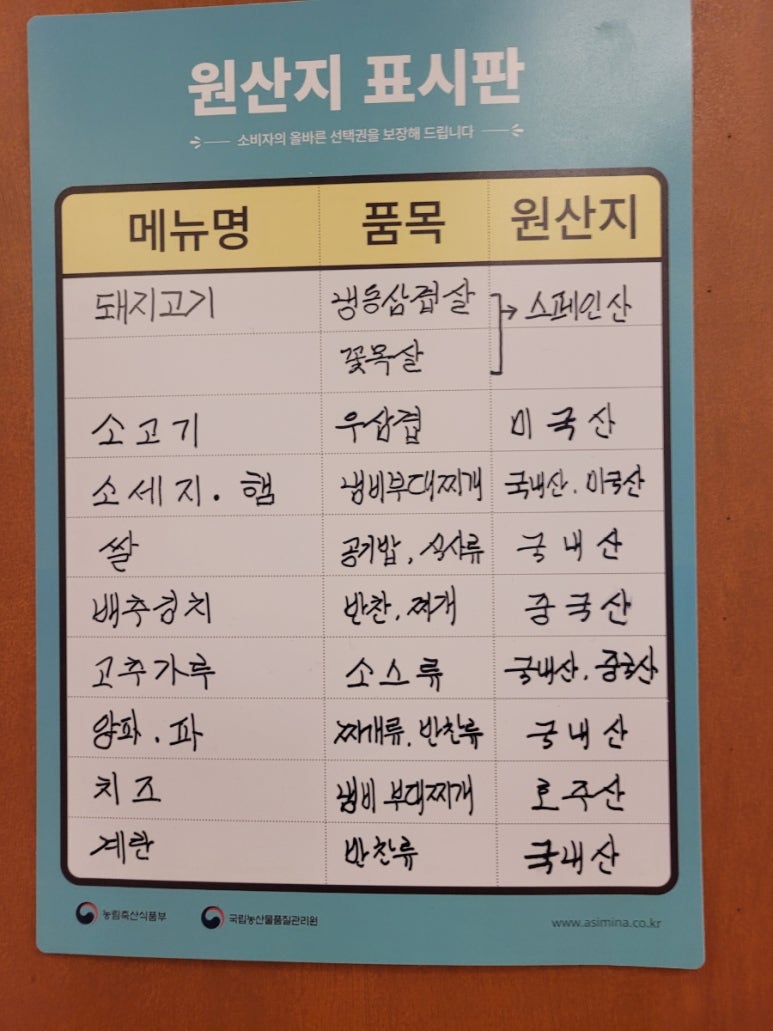 원산지 표시판
소비자의 올바른 선택권을 보장해 드립니다
메뉴명 품목 원산지
돼지고기 냉동삼겹살 → 스페인산
꽃목살
소고기 우삼겹 미국산
소세지. 햄 냄비부대찌개 국내산. 미국산
쌀 공기밥, 식사류 국내산
배추김치 반찬. 찌개 중국산
고추가루 소스류 국내산. 중국산
양파. 파 찌개류. 반찬류 국내산
치즈 냄비 부대찌개 호주산
계란 반찬류 국내산
농림축산식품부 국립농산물품질관리원 www.asimina.co.kr